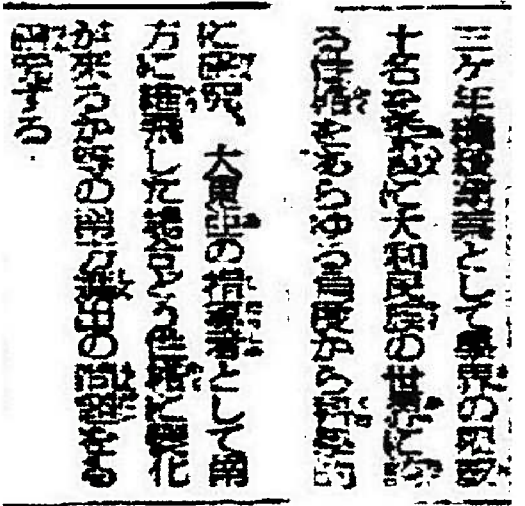 三ケ年繼續事業として學界の
十名を委員に大和民族の世界に於
る性格をあらゆる角度から科學的
に研究、大東亞の指導者として南
方に雄飛した場合どう性格に變化
が來るか等の地方の問題をも
研究する.